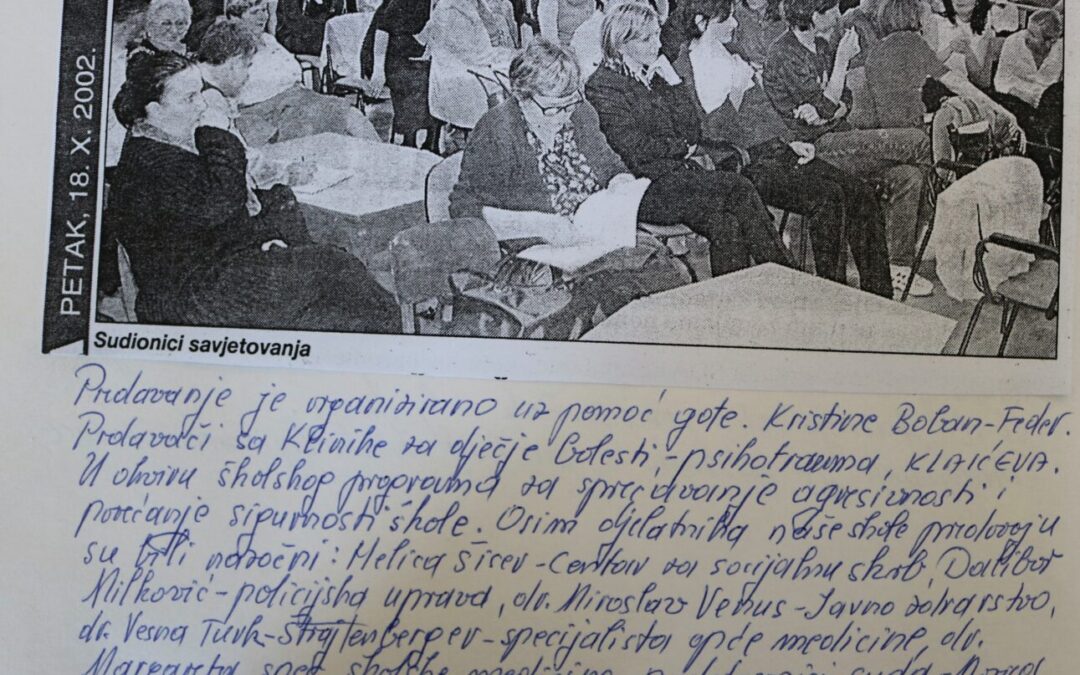 PETAK, 18. X. 2002.
Sudionici savjetovanja
Predavanje je organizirano uz pomoć gđe. Kristine Boban-Feder.
Predavači sa Klinike za dječje bolesti, -psihotrauma, KLAIĆEVA.
U okviru školskog programa za sprečavanje agresivnosti i
povećanje sigurnosti škole. Osim djelatnika naše škole predavanju
su bili nazočni: Melica Šicev - Centar za socijalnu skrb, Dalibor
Milković - policijska uprava, dr. Miroslav Venus - Javno zdravstvo,
dr. Vesna Turk - Štrajtenberger - specijalista opće medicine, dr.
Margareta spec. školske medicine, suda